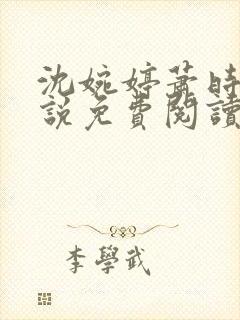 沈婉婷萧時
說免費閱讀
李學武